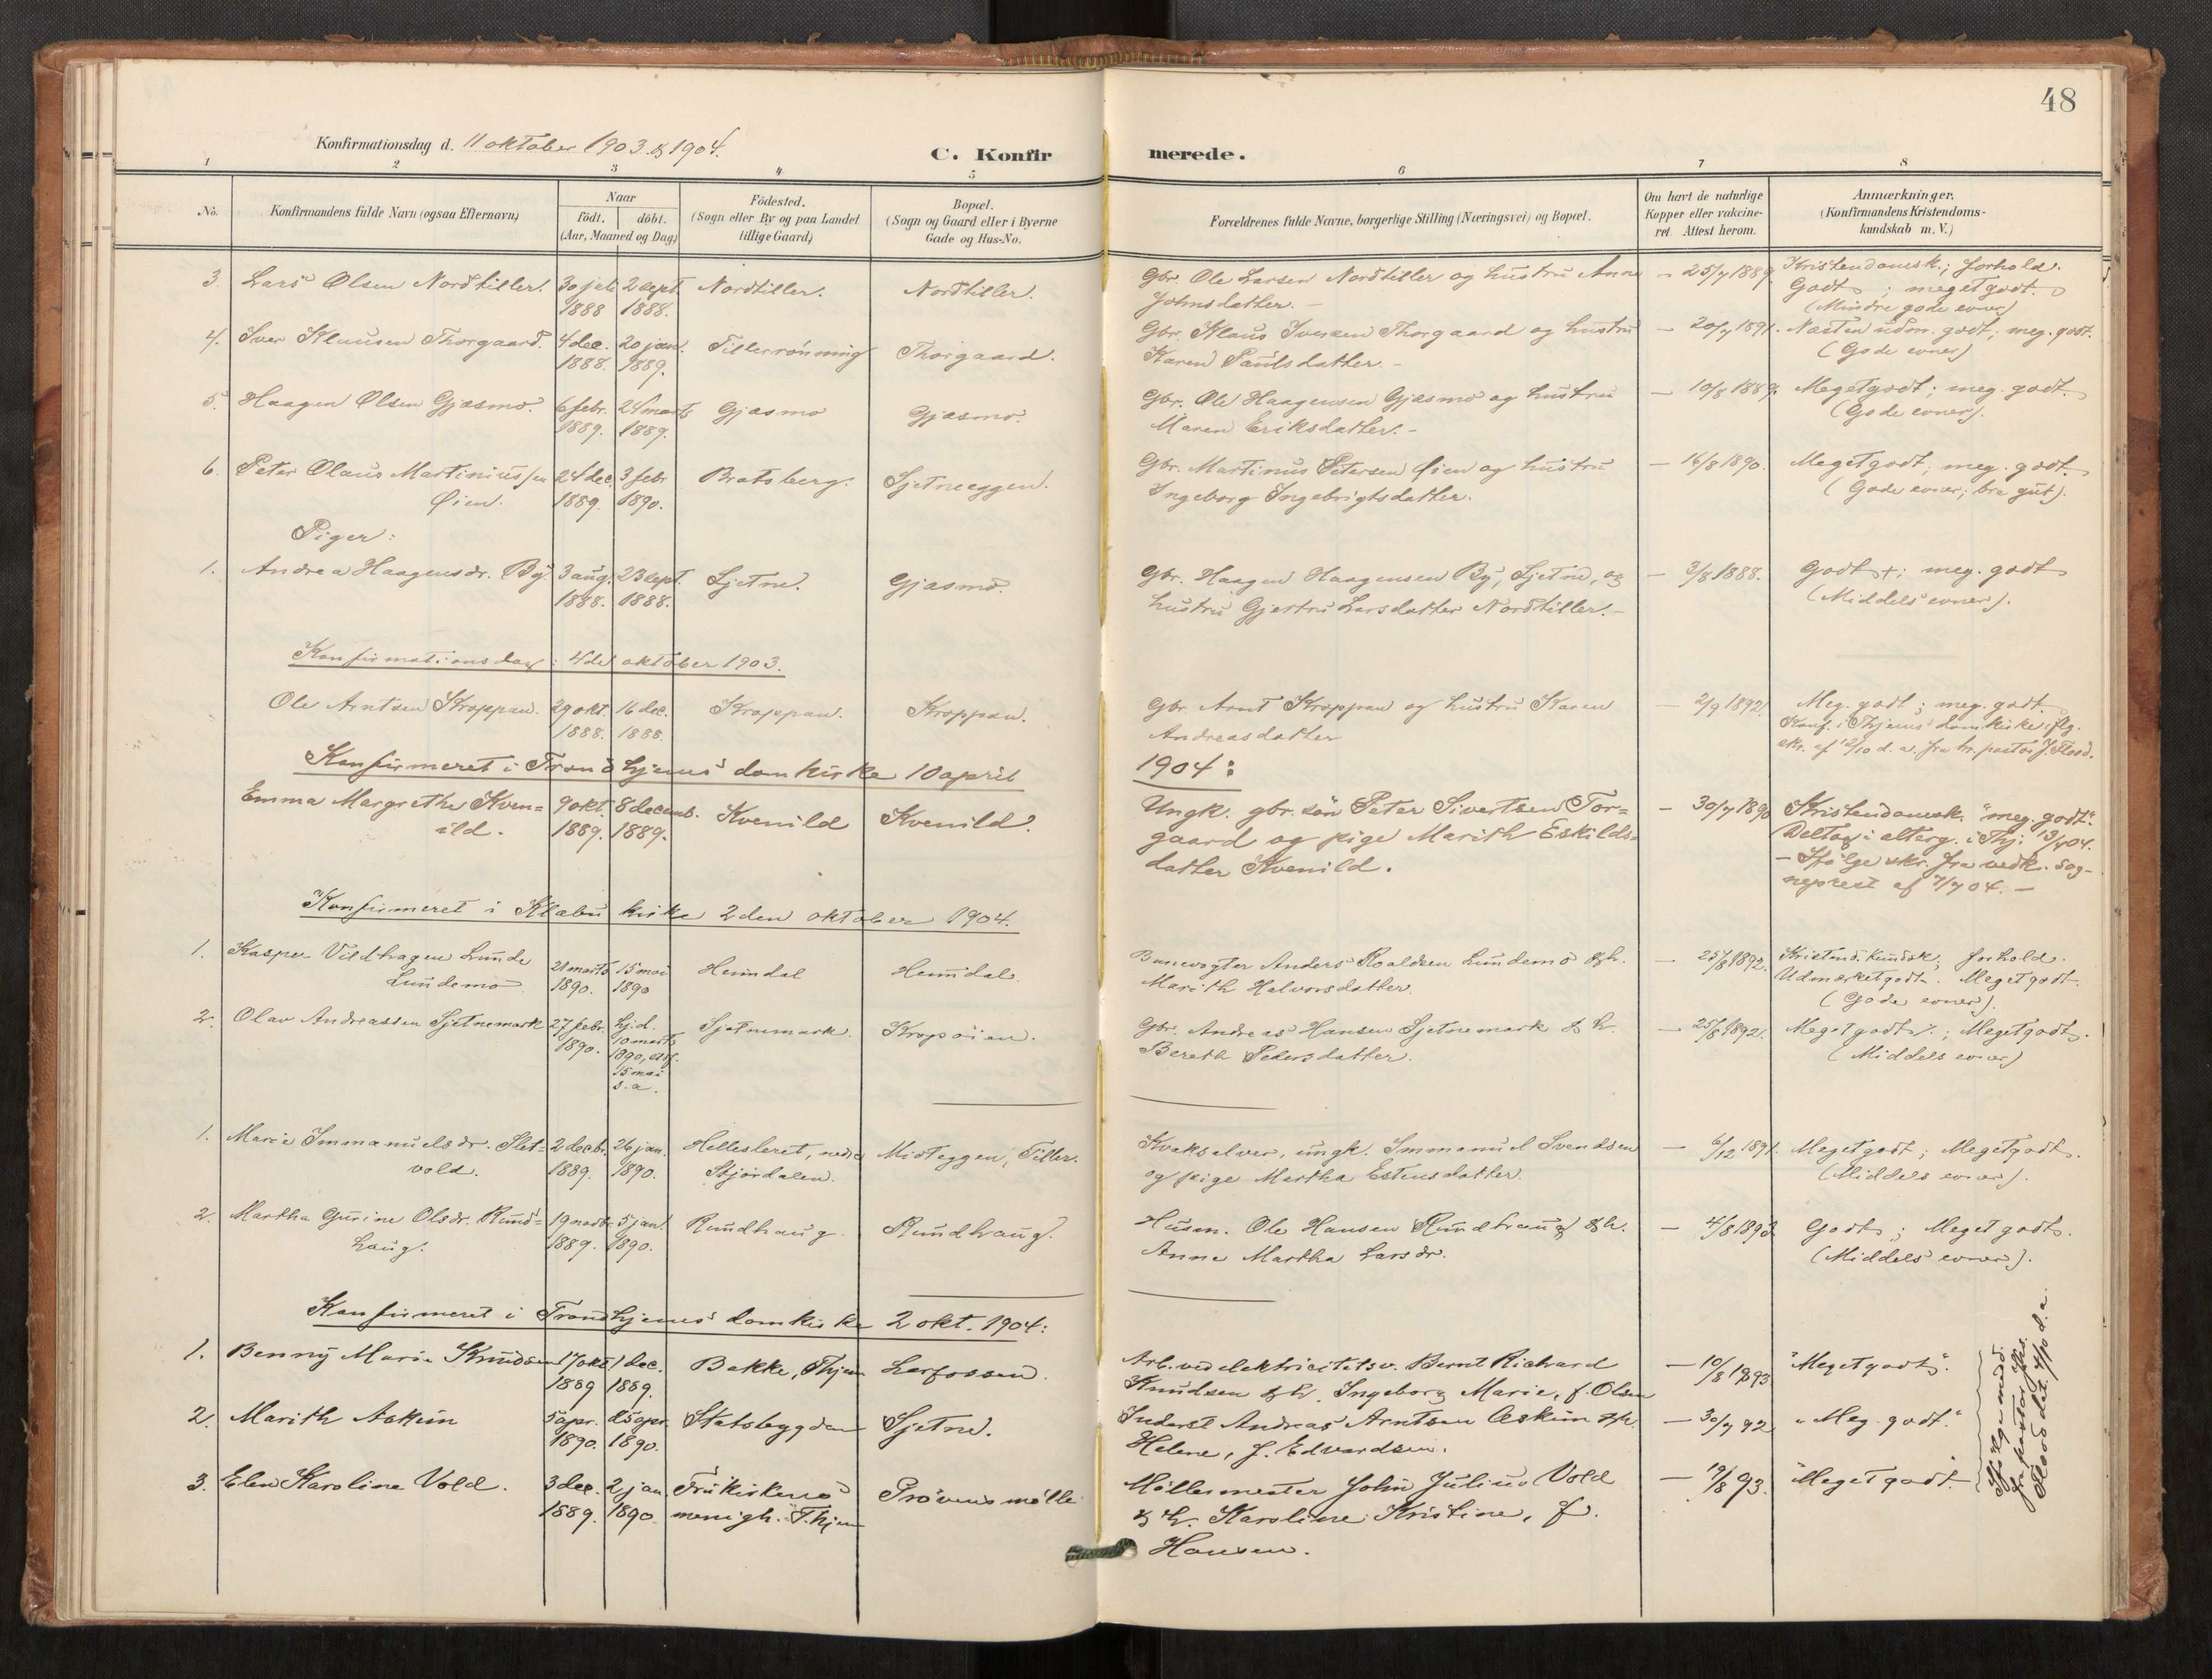 48
Konfirmationsdag d. 11 oktober 1903 & 1904.
C. Konfirmerede.
1 2 3 4 5 6 7 8
No. Konfirmandens fulde Navn (ogsaa Efternavn) Naar födt. döbt. (Aar, Maaned og Dag) Födested. (Sogn eller By og paa Landet tillige Gaard) Bopæl. (Sogn og Gaard eller i Byerne Gade og Hus-No. Forældrenes fulde Navne, borgerlige Stilling (Næringsvei) og Bopæl. Om havt de naturlige Kopper eller vakcineret Attest herom. Anmærkninger. (Konfirmandens Kristendomskundskab m. V.)
3. Lars Olsen Nordtiller. 30 juli 2 sept. Nordtiller. Nordtiller. Gbr. Ole Larsen Nordtiller og hustru Anne — 25/7 1889. Kristendomsk.; forhold.
1888 1888. Johnsdatter. – Godt ; meget godt.
(Mindre gode evner)
4. Iver Klausen Thorgaard. 4 dec. 20 jan. Tillerrönning Thorgaard. Gbr. Klaus Iversen Thorgaard og hustru — 20/7 1891. Næsten udm. godt; meg. godt.
1888. 1889. Karen Paulsdatter. – (Gode evner)
5. Haagen Olsen Gjæsmo. 6 febr. 24 marts Gjæsmo Gjæsmo. Gbr. Ole Haagensen Gjæsmo og hustru — 10/8 1889. Meget godt; meg. godt.
1889. 1889. Maren Eriksdatter. – (Gode evner).
6. Peter Olaus Martiniussen 24 dec 3 febr Bratsberg. Sjetneeggen. Gbr. Martinus Petersen Øien og hustru — 16/8 1890. Meget godt; meg. godt.
Øien. 1889. 1890. Ingeborg Ingebrigtsdatter. (Gode evner; bra gut).
Piger:
1. Andrea Haagensdr. By. 3 aug. 23 sept. Sjetne. Gjæsmo. Gbr. Haagen Haagensen By, Sjetne, og — 3/8 1888. Godt +; meg. godt
1888. 1888. hustru Gjertru Larsdatter Nordtiller. – (Middels evner).
Konfirmationsdag: 4de oktober 1903.
Ole Arntsen Kroppan. 29 okt. 16 dec. Kroppan. Kroppan. Gbr. Arnt Kroppan og hustru Karen — 2/9 1892. Meg. godt; meg. godt.
1888. 1888. Andreasdatter Konf. i Thjems domkirke iflg.
skr. af 12/10 d. a. fra hr. pastor J. Flood.
Konfirmeret i Trondhjems domkirke 10 april 1904:
Emma Margrethe Kven= 9 okt. 8 decemb. Kvenild Kvenild. Ungk. gbr. sön Peter Sivertsen Tor= — 30/7 1890 Kristendomsk. "meg. godt".
ild. 1889. 1889. gaard og pige Marith Eskilds= Deltog i alterg. i Thj. 13/4 04.
datter Kvenild. – Ifölge skr. fra vedk. sog-
neprest af 7/7 04. –
Konfirmeret i Klæbu kirke 2den oktober 1904.
1. Kasper Vildhagen Lunde 21 marts 15 mai Heimdal Heimdal. Banevogter Anders Roaldsen Lundemo & h. — 25/8 1892. Kristend. kundsk; forhold.
Lundemo 1890. 1890 Marith Halvorsdatter. Udmærket godt-. Meget godt.
(Gode evner).
2. Olav Andreassen Sjetnemark 27 febr. hj.d. Sjetnemark. Kropöien. Gbr. Andreas Hansen Sjetnemark & h. — 25/8 1892. Meget godt ÷; Meget godt.
1890. 10 marts Bereth Pedersdatter. (Middels evner)
1890, 15 mai
s. a.
1. Marie Immanuelsdr. Slet= 2 decbr. 26 jan. Hellesteret, nedre Midteggen, Tiller. Kvaksalver, ungk. Immanuel Svendsen — 6/12 1891. Meget godt; Meget godt.
vold. 1889. 1890. Stjördalen. og pige Martha Estensdatter. (Middels evner).
2. Martha Gurine Olsdr. Rund= 19 novbr. 5 jan. Rundhaug. Rundhaug. Husm. Ole Hansen Rundhaug & h. — 4/8 1893 Godt; Meget godt.
haug. 1889. 1890. Anne Martha Larsdr. (Middels evner).
Konfirmeret i Trondhjems domkirke 2 okt. 1904:
1. Benny Marie Knudsen 17 okt 1 dec. Bakke, Thjem Lerfossen. Arb. ved elektricitetsv. Bernt Richard — 10/8 1893 "Meget godt".
1889 1889. Knudsen & h. Ingeborg Marie, f. Olsen
2. Marith Askim 5 apr. 25 apr. Statsbygden Sjetne. Inderst Andreas Arntsen Askim & h. — 30/7 92 "Meg. godt."
1890. 1890. Helene, f. Edvardsen.
3. Elen Karoline Vold. 3 dec. 2 jan Frikirkens Prövens mölle Möllemester John Julius Vold — 19/8 93. "Meget godt."
1889. 1890 menigh. Thjem & h. Karoline Kristine, f.
Hansen.
Ifölge medd.
fra pastor Jhs.
Flood dat. 4/10 d. a.